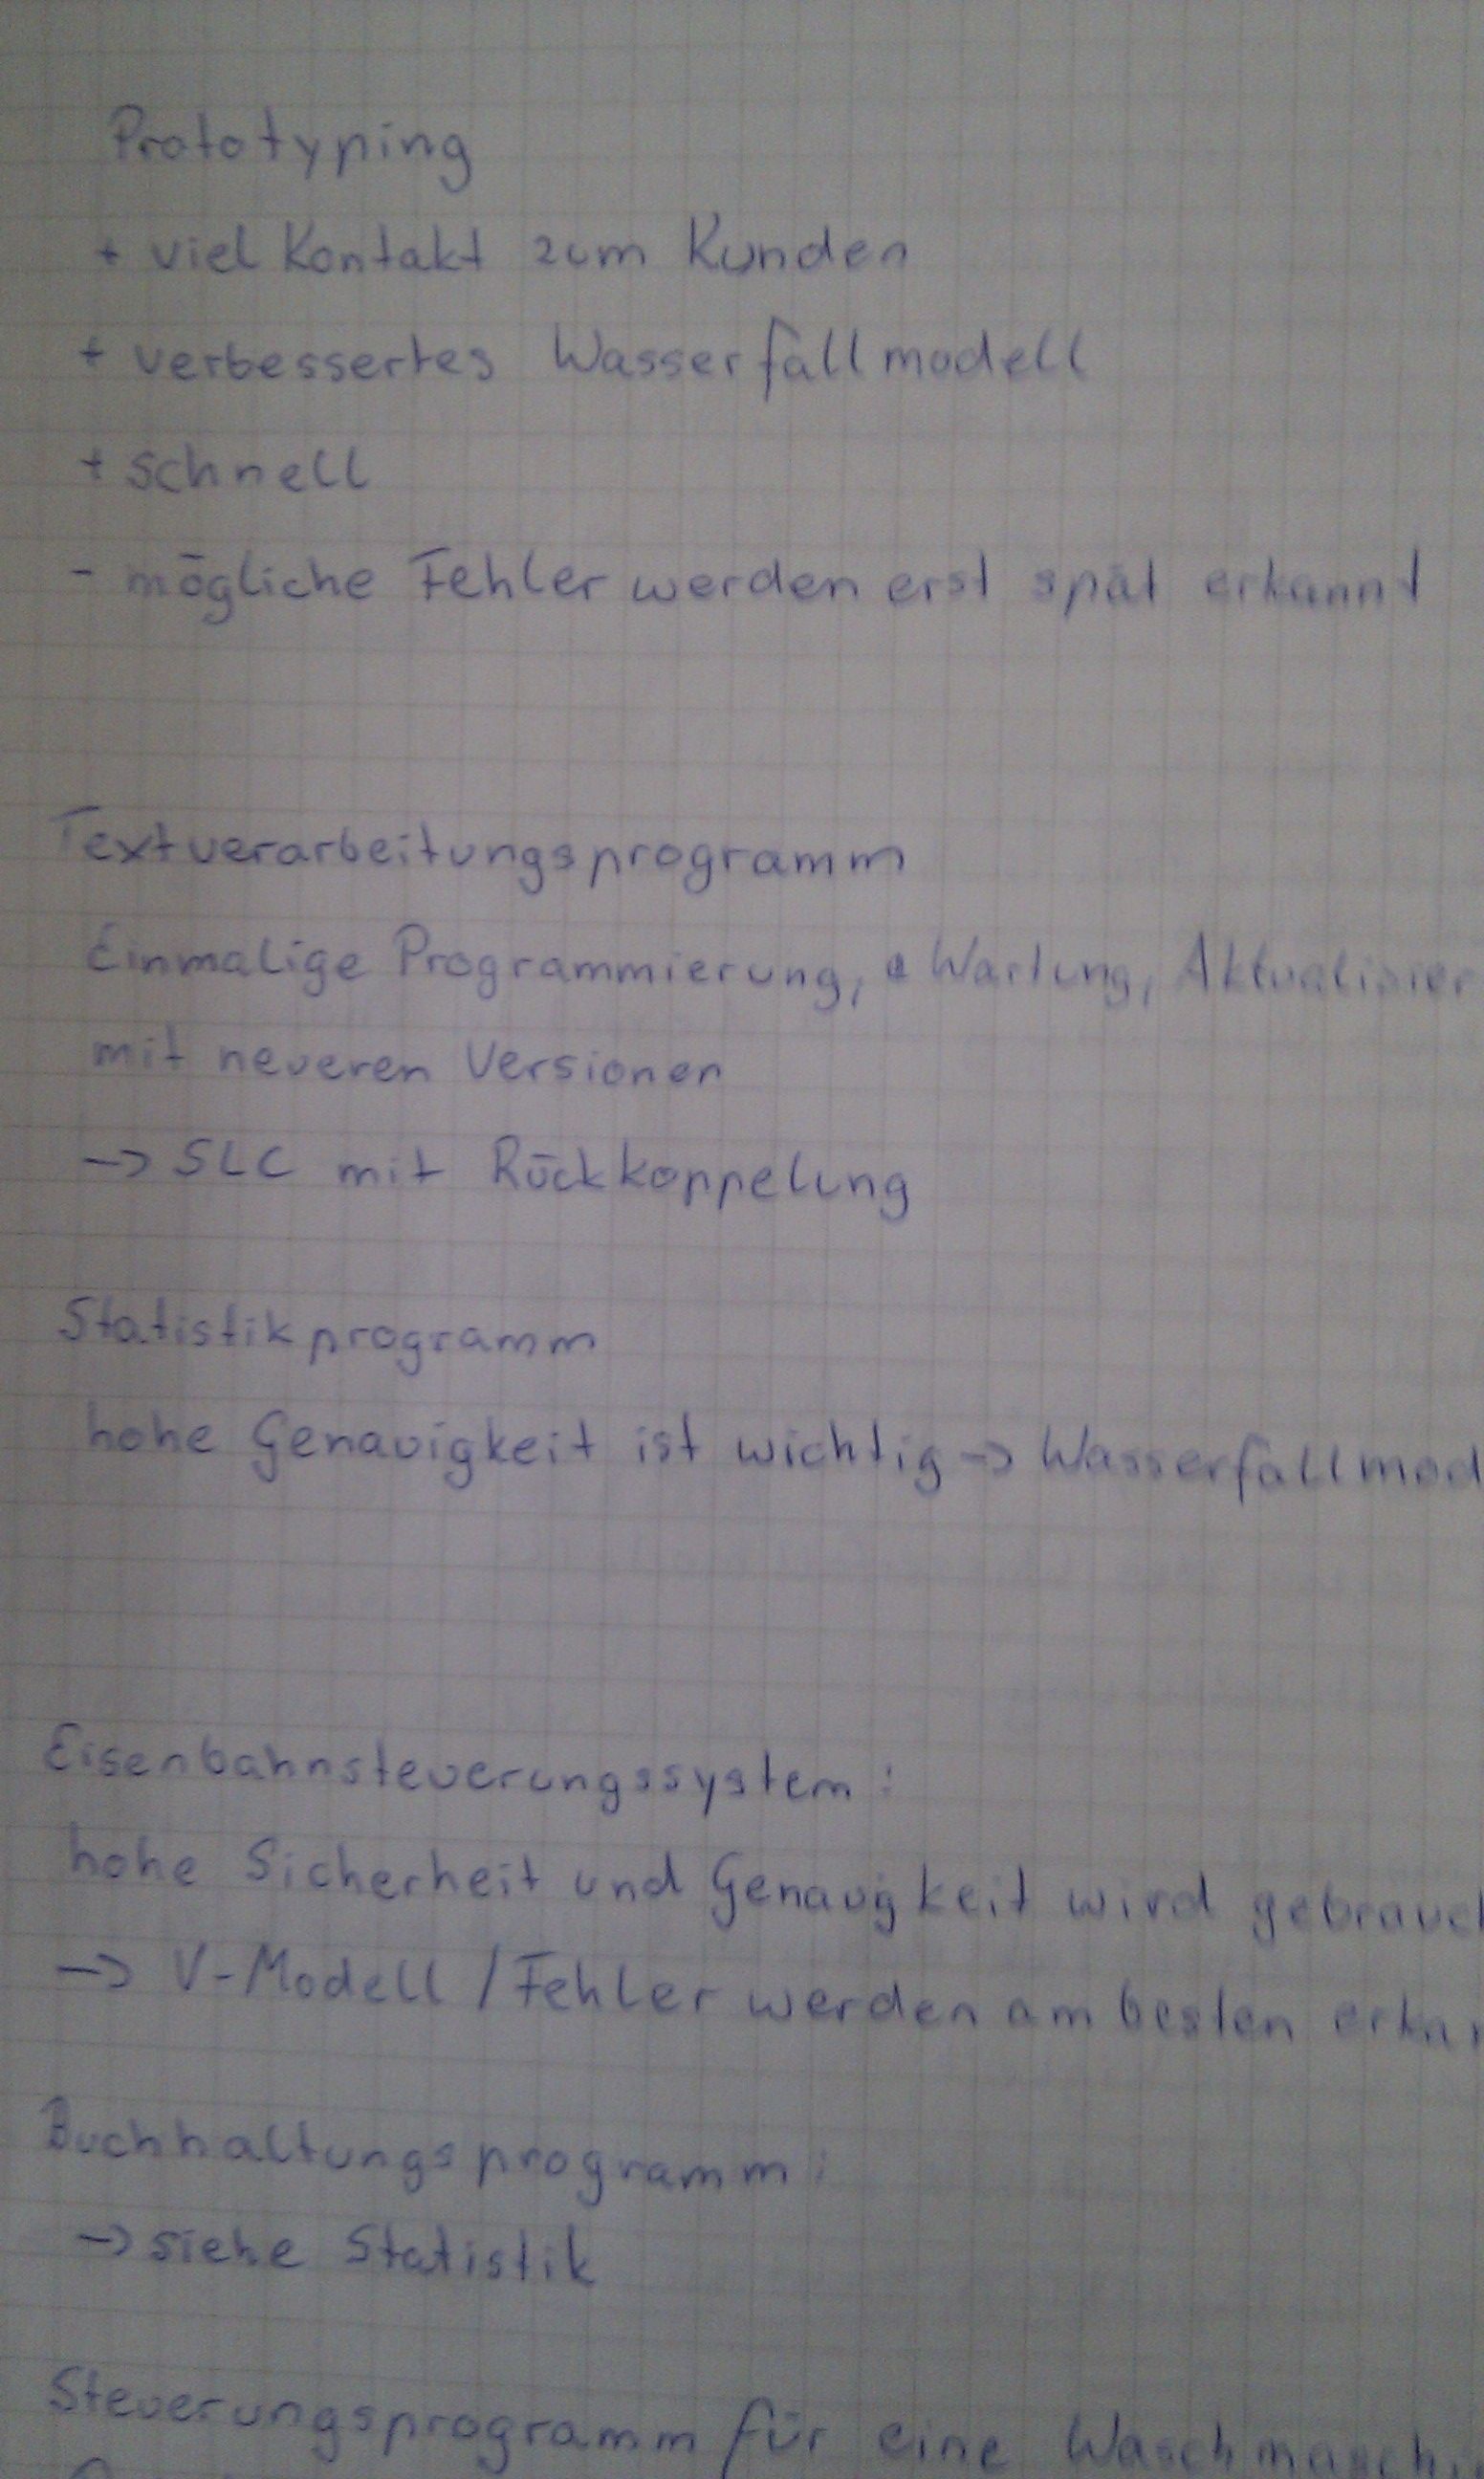 Prototyping
+ viel Kontakt zum Kunden
+ verbessertes Wasserfallmodell
+ schnell
- mögliche Fehler werden erst spät erkannt
Textverarbeitungsprogramm
Einmalige Programmierung, Wartung, Aktualisier
mit neueren Versionen
-> SLC mit Rückkoppelung
Statistikprogramm
hohe Genauigkeit ist wichtig -> Wasserfallmod
Eisenbahnsteuerungssystem:
hohe Sicherheit und Genauigkeit wird gebrauch
-> V-Modell / Fehler werden am besten erkan
Buchhaltungsprogramm:
-> siehe Statistik
Steuerungsprogramm für eine Waschmaschi